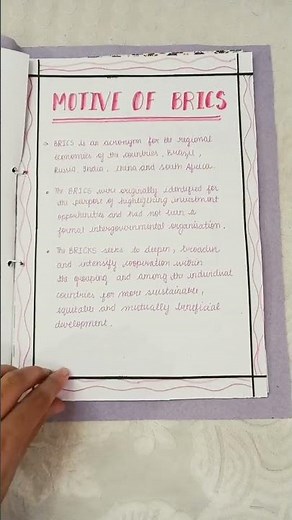 MOTIVE OF BRICS
BRICS is an acronym for the regional
economies of the countries, Brazil,
Russia India, China and South Africa.
The BRICS were originally identified for
the purpose of highlighting investment
opportunities and had not been a
formal intergovernmental organisation.
The BRICS seeks to deepen, broaden
and intensify cooperation within
the grouping and among the individual
countries for more sustainable,
equitable and mutually beneficial
development.